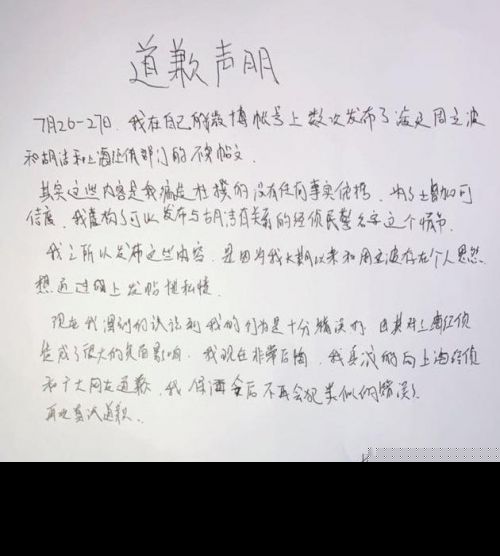 道歉声明
7月26-27日,我在自己的微博帐号上数次发布了诬蔑周立波
和胡洁和上海经侦部门的不实帖文.
其实这些内容是我捏造杜撰的没有任何事实依据,为了增加可
信度,我虚构了可以发布与胡洁有关的经侦民警名字这个情节.
我之所以发布这些内容,是因为我长期以来和周立波存在个人恩怨
想通过网上发帖泄私愤.
现在我深刻的认识到我的行为是十分错误的,尤其对上海经侦
造成了很大的负面影响,我现在非常后悔,我真诚的向上海经侦
和广大网友道歉,我保证今后不再会犯类似的错误.
再次表示道歉.